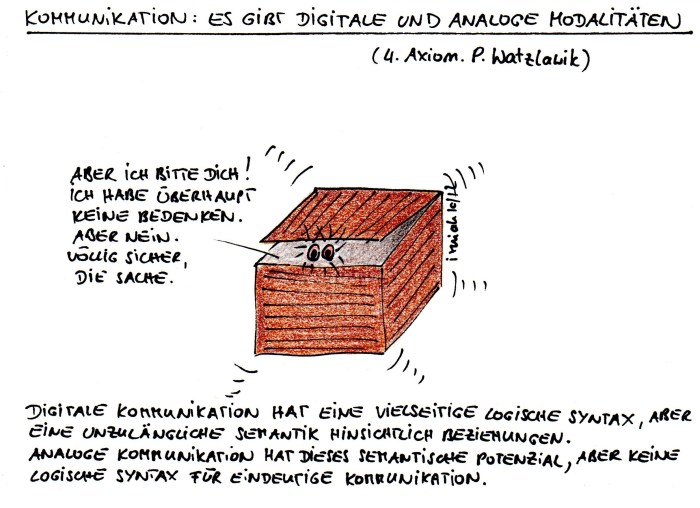 KOMMUNIKATION: ES GIBT DIGITALE UND ANALOGE MODALITÄTEN
(4. Axiom. P. Watzlawik)
ABER ICH BITTE DICH!
ICH HABE ÜBERHAUPT
KEINE BEDENKEN.
ABER NEIN.
VÖLLIG SICHER,
DIE SACHE.
DIGITALE KOMMUNIKATION HAT EINE VIELSEITIGE LOGISCHE SYNTAX, ABER
EINE UNZULÄNGLICHE SEMANTIK HINSICHTLICH BEZIEHUNGEN.
ANALOGE KOMMUNIKATION HAT DIESES SEMANTISCHE POTENZIAL, ABER KEINE
LOGISCHE SYNTAX FÜR EINDEUTIGE KOMMUNIKATION.